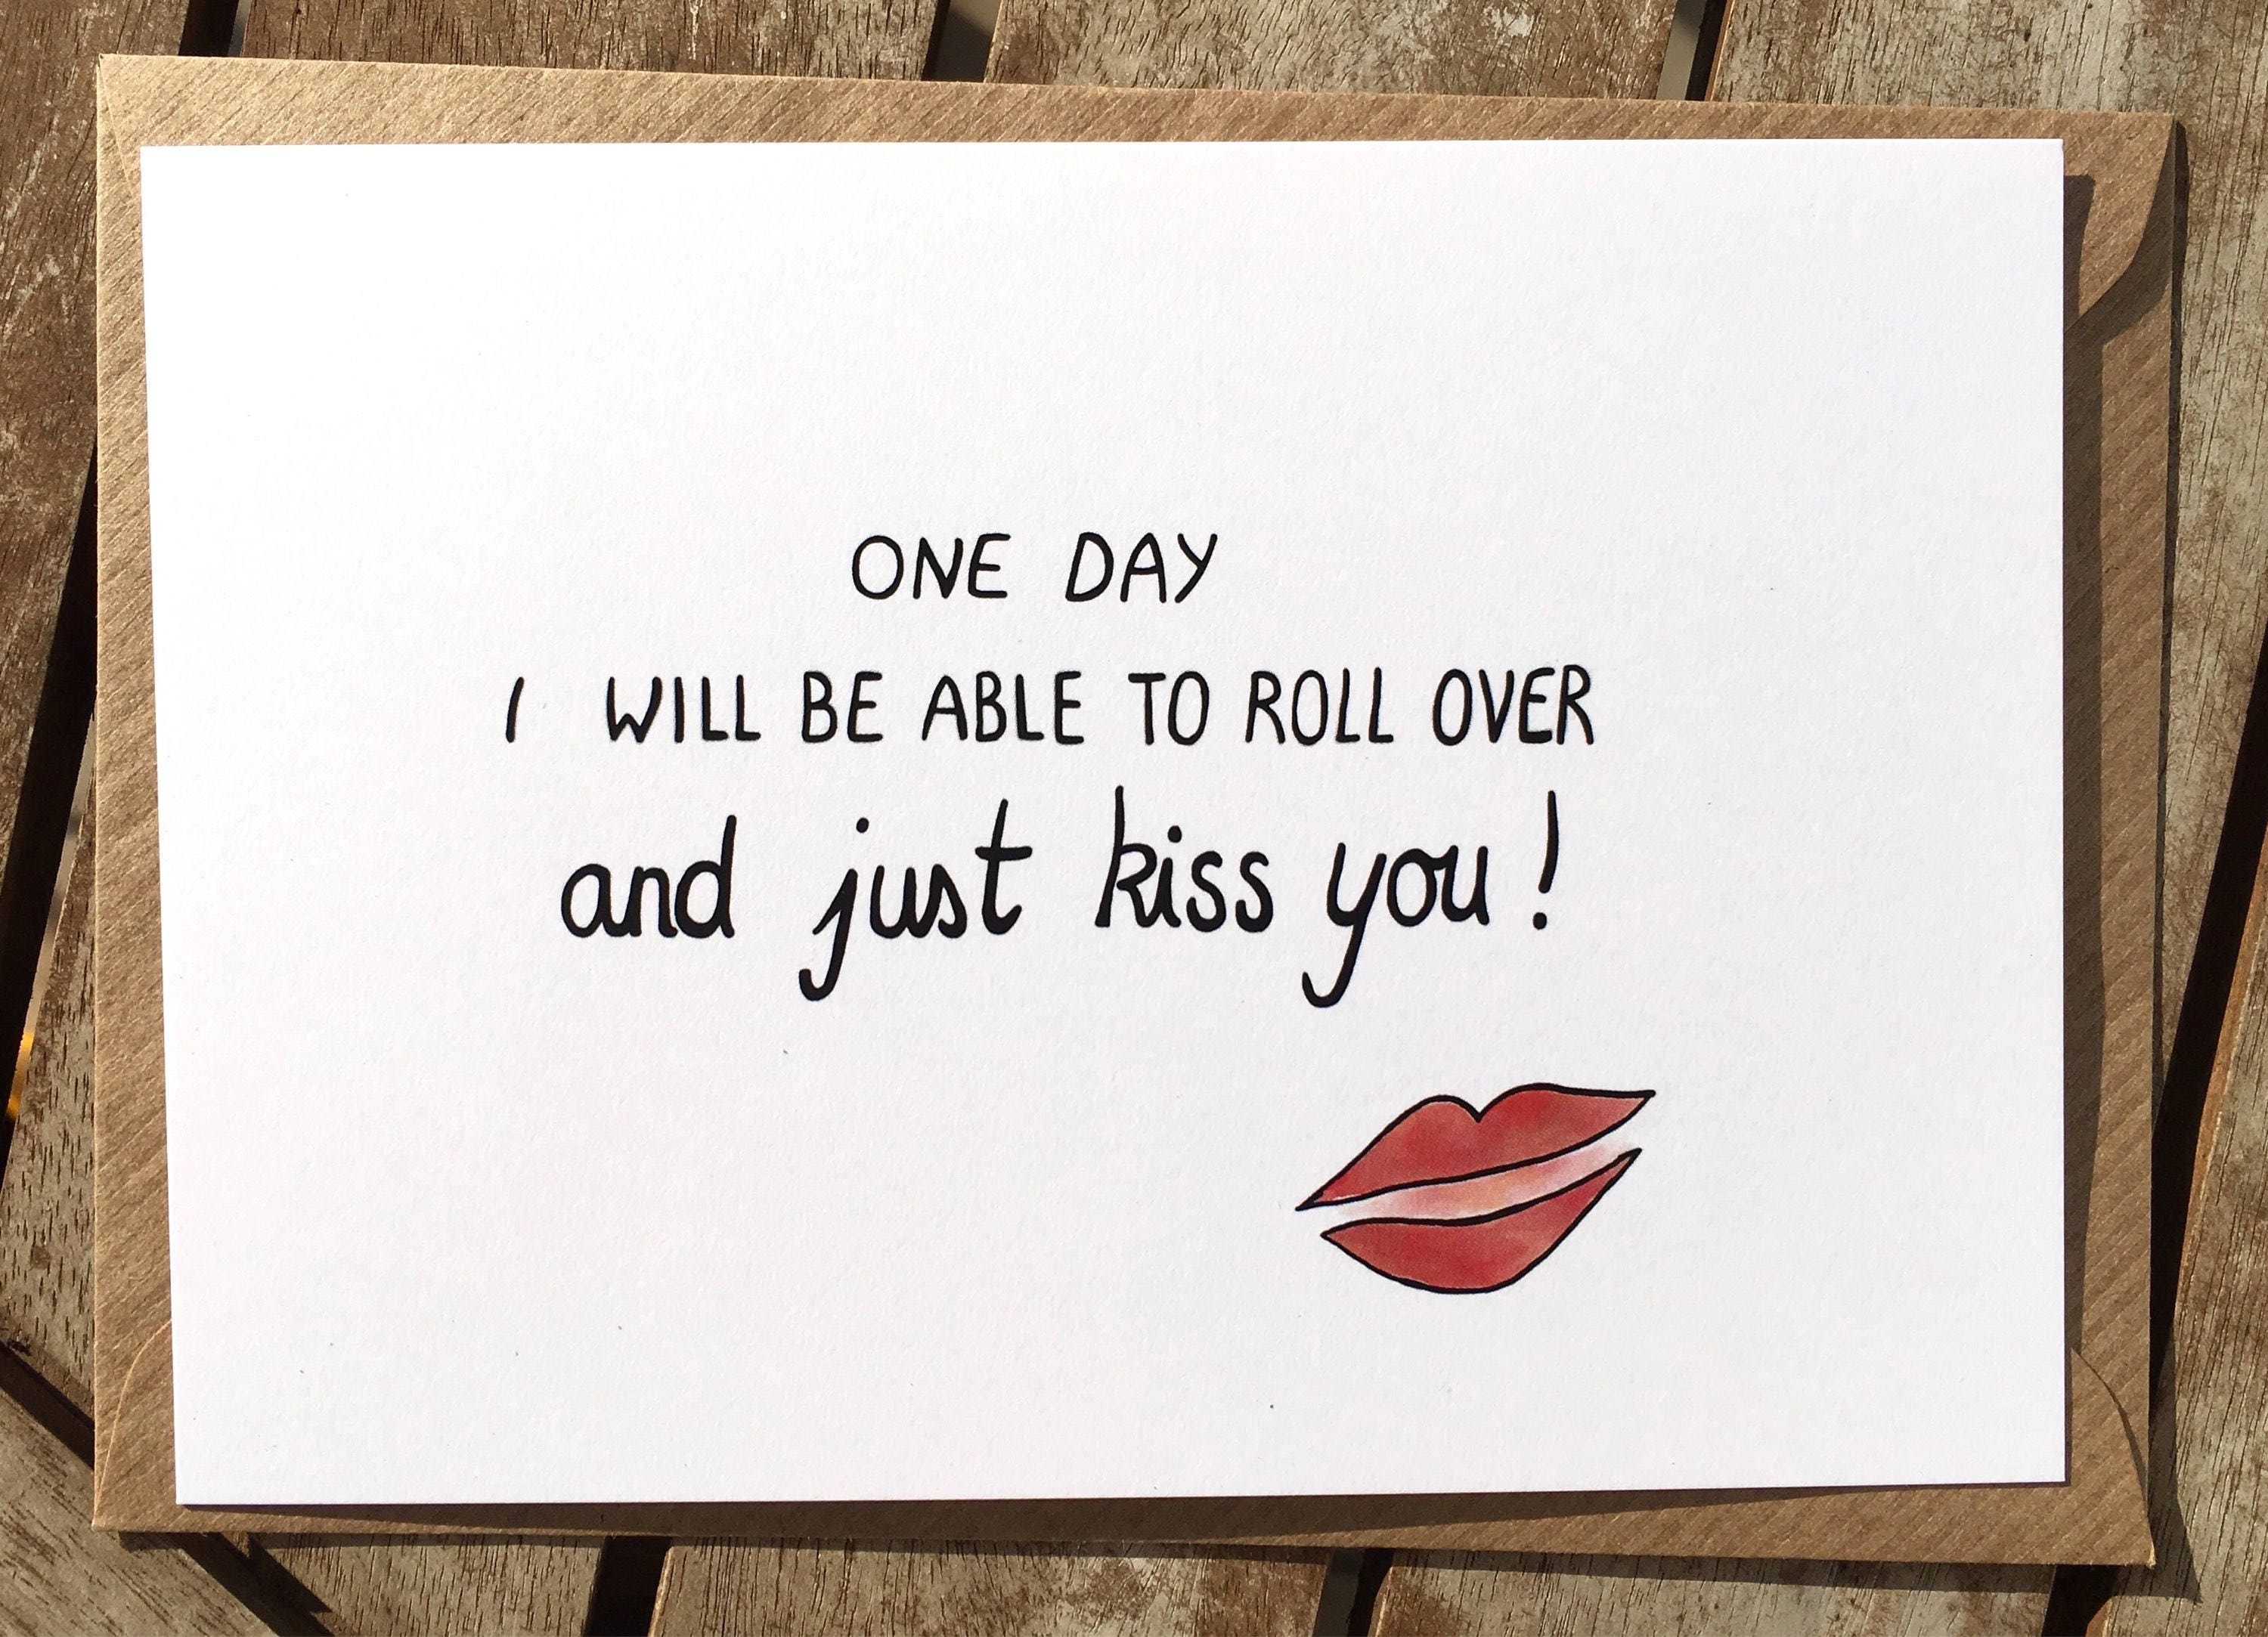 ONE DAY
I WILL BE ABLE TO ROLL OVER
and just kiss you!